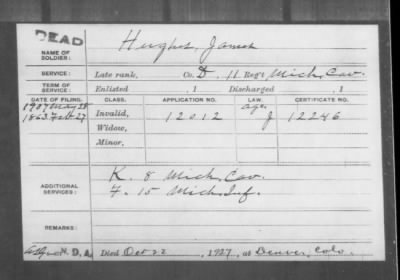 DEAD
NAME OF SOLDIER:
Hughes, James
SERVICE:
Late rank, Co. D, 11 Reg't Mich. Cav.
TERM OF SERVICE:
Enlisted , 1 Discharged , 1
DATE OF FILING. CLASS. APPLICATION NO. LAW. CERTIFICATE NO.
1907 May 28
1863 Feb 27 Invalid, 12012 12246
Widow,
Minor,
K. 8 Mich. Cav.
ADDITIONAL SERVICES:
F. 15 Mich. Inf.
REMARKS:
N.D.A. Died Oct 22, 1927, at Denver, Colo.